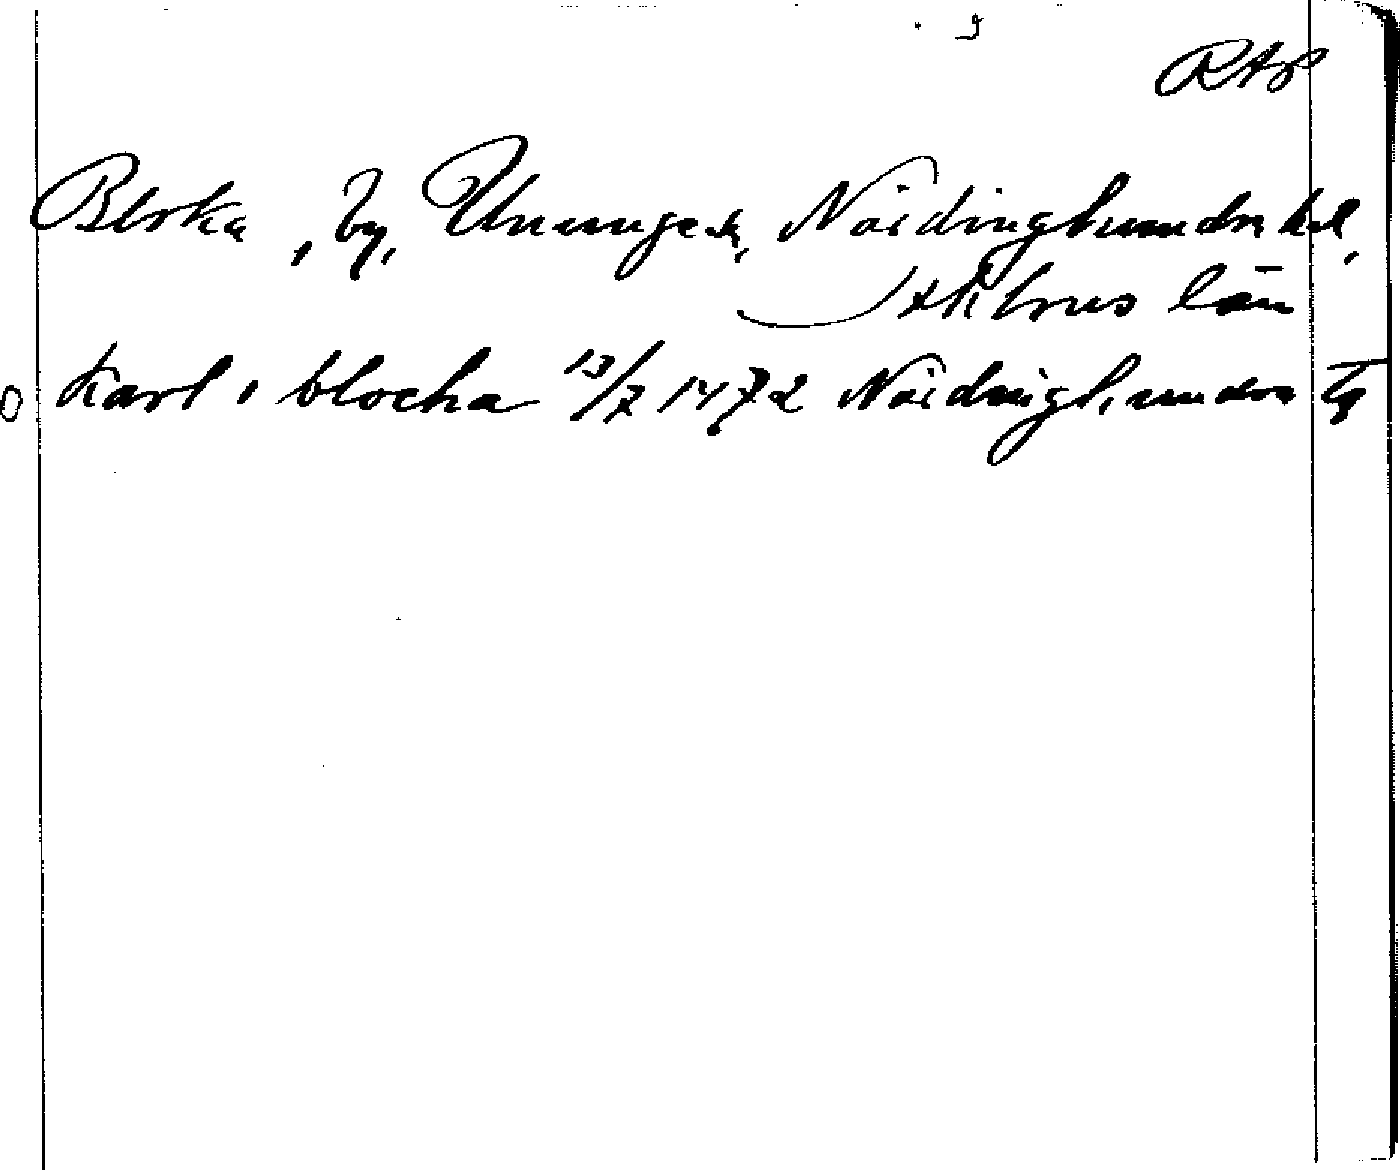 RAP
Bloka, by, Ununge sn, Närdinghundra hd,
Sthlms län
Karl i blocka 13/7 1472 Närdinghundra tg